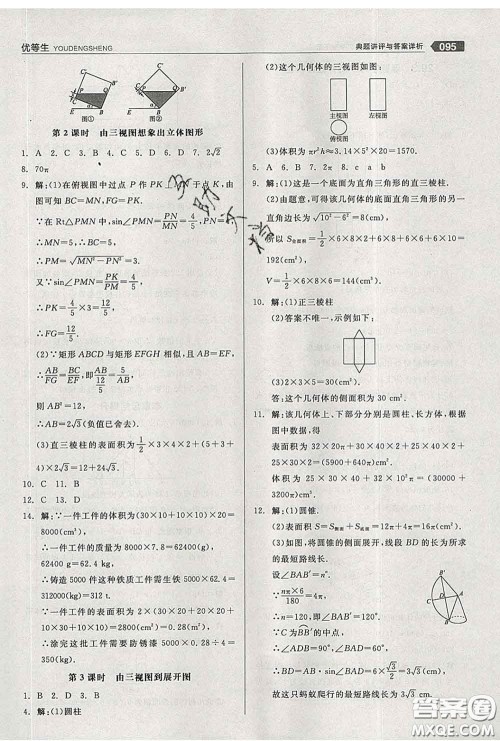 优等生 YOUDENGSHENG
典题讲评与答案详析 095
图① 图②
第2课时 由三视图想象出立体图形
1. A 2. D 3. B 4. C 5. D 6. D 7. 2√2
8. 70π
9. 解:(1)在俯视图中过点 P 作 PK 于点 K,由
图可知 MN=5.
∵在 Rt△PMN 中,sin∠PMN=PN/MN=4/5, PN=4,
∴PM=√(MN²-PN²)=3.
又∵sin∠PMN=PK/PM=4/5,
∴PK=4/5×3=12/5,
∴FG=12/5.
(2)∵矩形 ABCD 与矩形 EFGH 相似,且 AB=EF,
∴AB/FG=BC/EF,即 AB/(12/5)=5/AB,
则 AB²=12,
∴AB=2√3(负值已舍去).
(3)直三棱柱的表面积为1/2×3×4×2+(5+3+
4)×2√3=12+24√3.
10. C 11. C 12. C 13. D
14. 解:∵一件工件的体积为(30×10+10×10)×20=
8000(cm³),
∴一件工件的质量为 8000×7.8=62400(g),
∴一件工件的重量为62400g=62.4(kg),
∴铸造 5000 件这种铁质工件需生铁
5000×62.4=312(t).
∴一件工件的表面积为
2×(30×20+20×20+10×30+10×10)
=2800(cm²)=0.28(m²).
∴涂完这批工件要防锈漆 5000×0.28÷4=
350(kg).
第3课时 由三视图到展开图
1. B 2. D 3. B
4. 解:(1)圆柱
(2)这个几何体的三视图如图:
主视图 左视图
俯视图
(3)体积为 πr²h≈3.14×5²×20=1570.
5. A 6. B 7. B 8. c a b
9. 解:(1)这是一个底面为直角三角形的直三棱柱.
(2)由题意可得,该几何体底面直角三角形的另一
直角边长为√(10²-6²)=8(cm),
所以 S全面积=1/2×6×8×2+8×6+6×6+6×10=
192(cm²),
V=1/2×6×8×6=144(cm³).
10. 解:(1)正三棱柱
(2)答案不唯一,示例如下:
(3)2×3×5=30(cm²).
答:这个几何体的侧面积为 30 cm².
11. 解:该几何体上、下部分分别是圆柱、长方体,根据
图中数据,得
表面积为 32×20π+30×40×2+25×40×2+
25×30×2=(5900+640π)(cm²),
体积为 25×30×40+10²×32π=(30000+
3200π)(cm³).
12. 解:(1)圆锥.
(2)表面积 S=S扇形+S圆=πrl+πr²=12π+4π=16π.
(3)如图,将圆锥侧面展开,线段 BD 的长为所求
的最短路线长.
∵∠BAB′=n°,
∴nπ×6/180=4π,
∴n=120,即∠BAB′=120°.
∵C 为BB′的中点,
∴∠ADB=90°,∠BAD=60°,
∴BD=AB·sin∠BAD=6×√3/2=3√3(cm).
故这只蚂蚁爬行的最短路线长为 3√3 cm.
答案圈
MXQE.COM